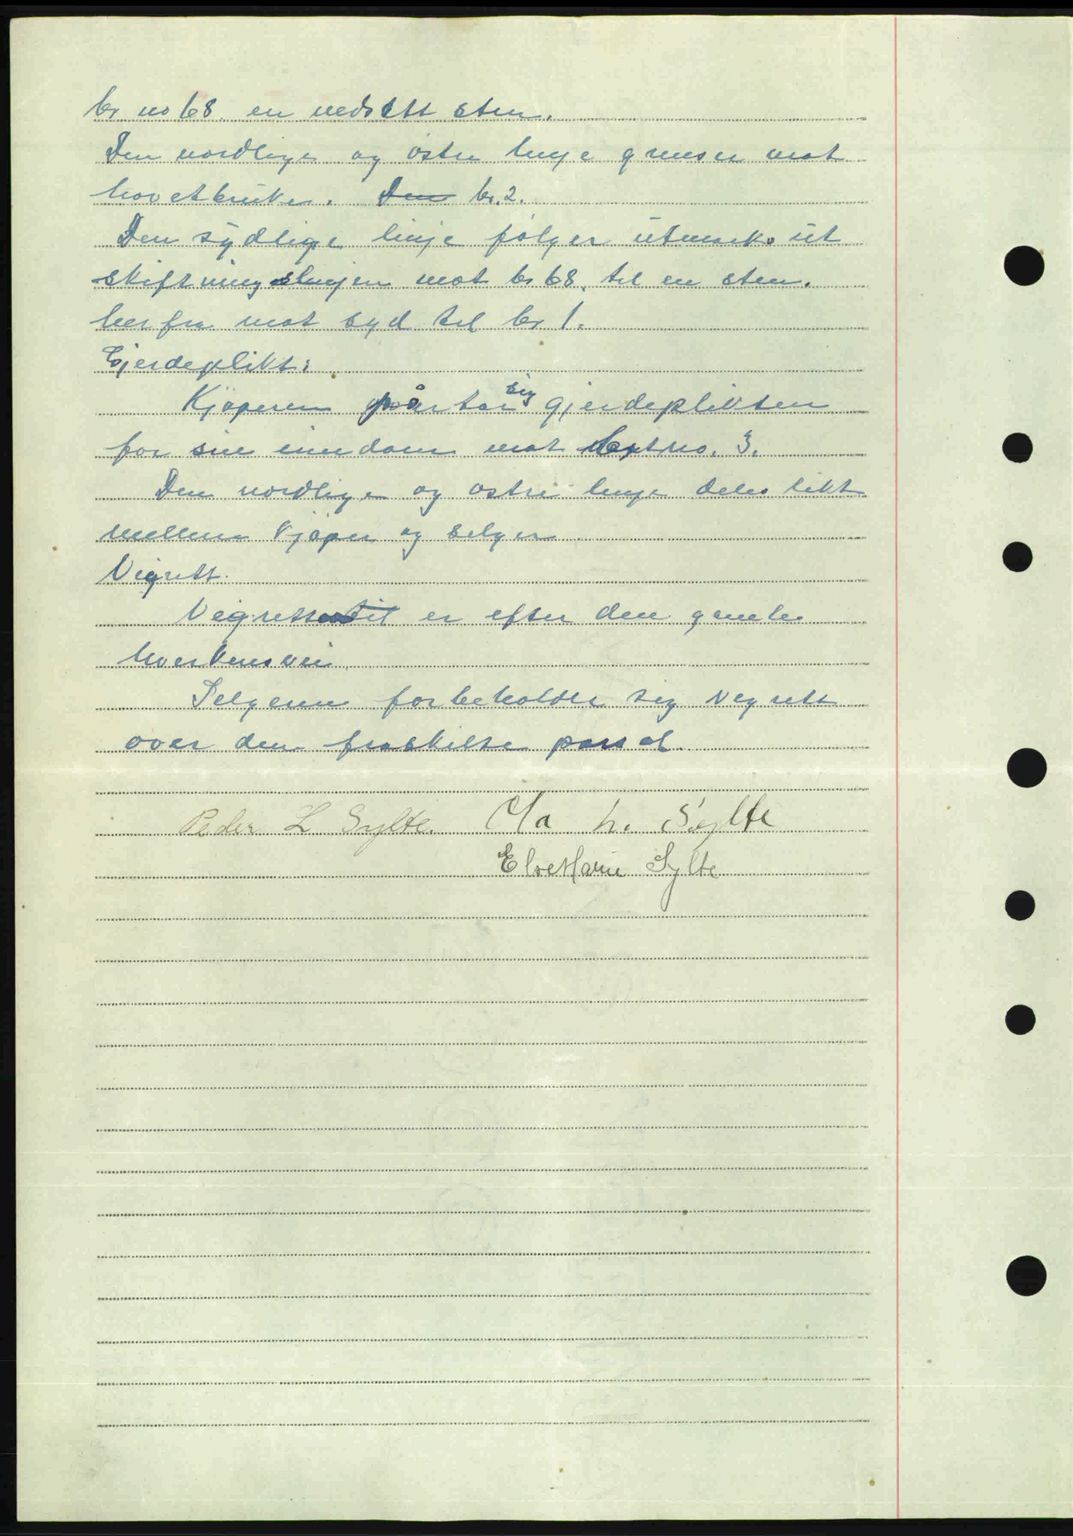 br no 68 en nedsatt sten.
Den nordlige og østre linje grenser mot
hovetbruke. Den br. 2.
Den sydlige linje følger utmarks ut
skiftningslinjen mot br 68. til en sten.
herfra mot syd til br 1.
Gjerdeplikt:
Kjøperen påtar sig gjerdeplikten
for sin eiendom mot br no. 3.
Den nordlige og østre linje deles likt
mellem kjøper og selger
Vegrett.
Vegretten til er efter den gamle
kverkensvei
Selgeren forbeholder sig vegrett
over den fraskilte parsel.
Peder L Sylte. Ola L. Sylte
Marie Sylte